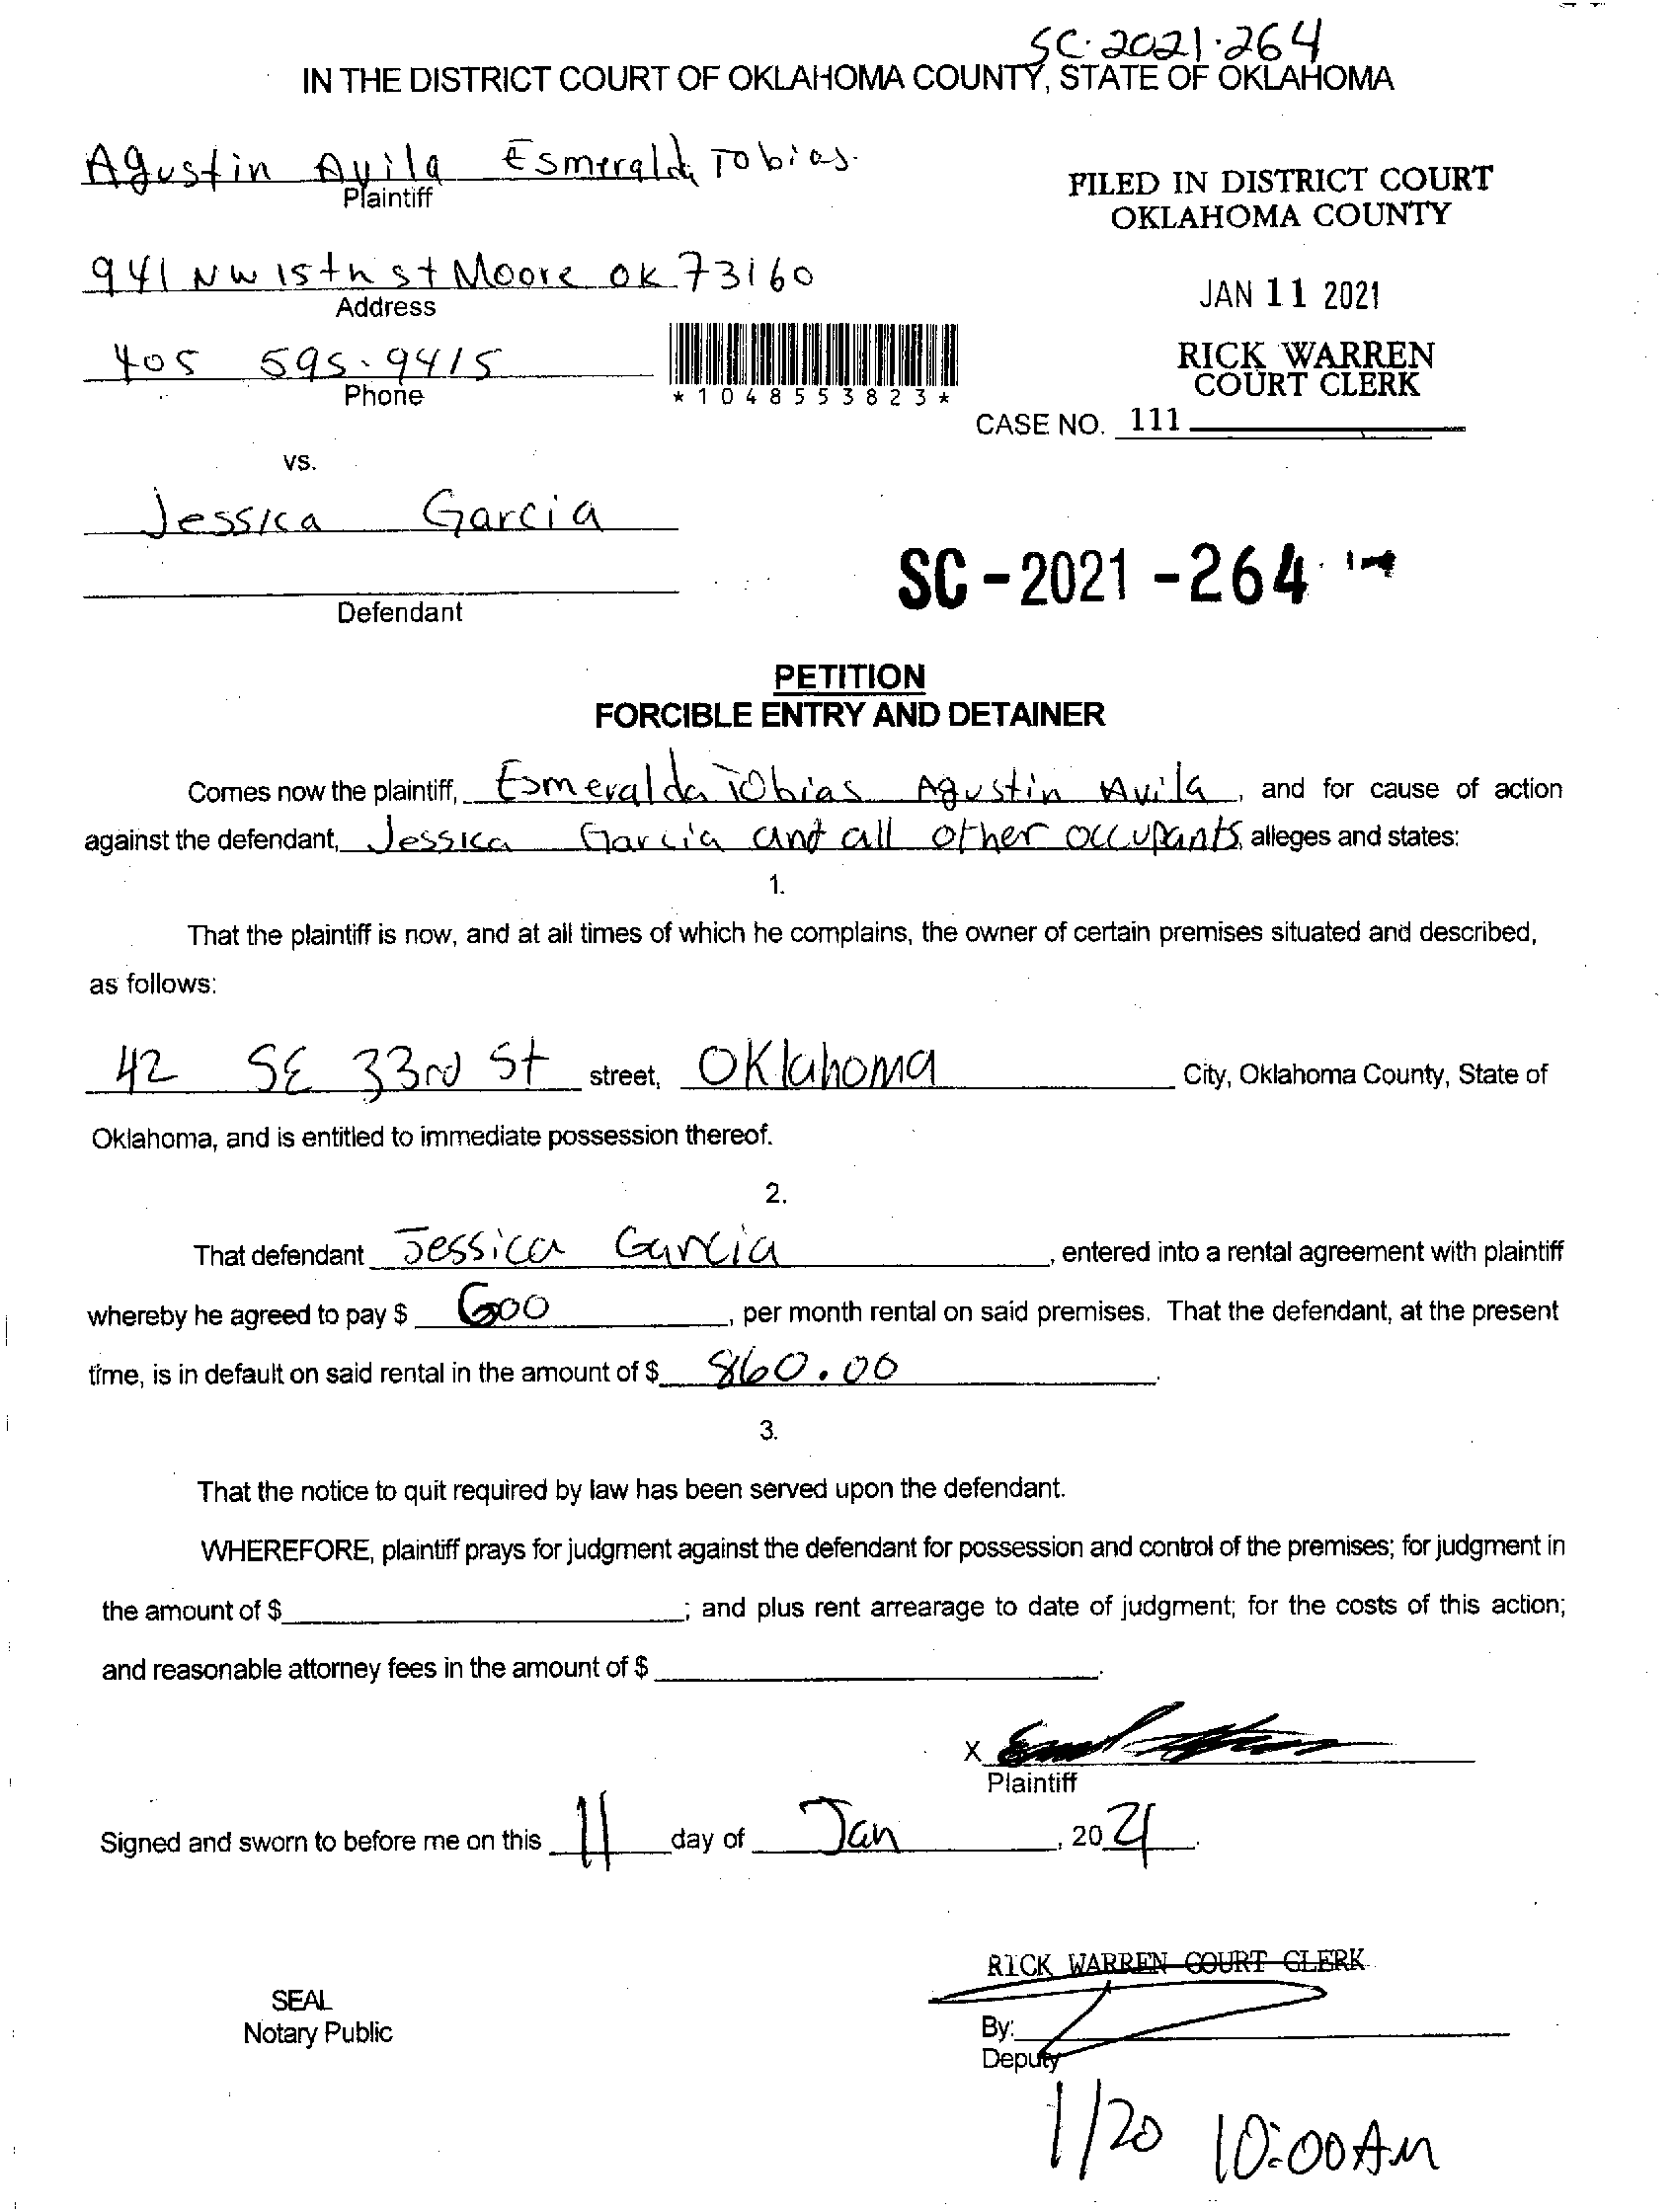 SC-2021-264
IN THE DISTRICT COURT OF OKLAHOMA COUNTY, STATE OF OKLAHOMA
Agustin Avila Esmeralda Tobias.
Plaintiff
FILED IN DISTRICT COURT
OKLAHOMA COUNTY
941 NW 15th st Moore OK 73160
Address
JAN 11 2021
405 595-9415
Phone
*1048553823*
RICK WARREN
COURT CLERK
CASE NO. 111
vs.
Jessica Garcia
SC-2021-264
Defendant
PETITION
FORCIBLE ENTRY AND DETAINER
Comes now the plaintiff, Esmeralda Tobias Agustin Avila, and for cause of action
against the defendant, Jessica Garcia and all other occupants, alleges and states:
1.
That the plaintiff is now, and at all times of which he complains, the owner of certain premises situated and described,
as follows:
42 SE 33rd St street, Oklahoma City, Oklahoma County, State of
Oklahoma, and is entitled to immediate possession thereof.
2.
That defendant Jessica Garcia, entered into a rental agreement with plaintiff
whereby he agreed to pay $ 600, per month rental on said premises. That the defendant, at the present
time, is in default on said rental in the amount of $ 860.00.
3.
That the notice to quit required by law has been served upon the defendant.
WHEREFORE, plaintiff prays for judgment against the defendant for possession and control of the premises; for judgment in
the amount of $; and plus rent arrearage to date of judgment; for the costs of this action;
and reasonable attorney fees in the amount of $.
X
Plaintiff
Signed and sworn to before me on this 11 day of Jan, 2021.
RICK WARREN COURT CLERK
SEAL
Notary Public
By:
Deputy
1/20 10:00 AM